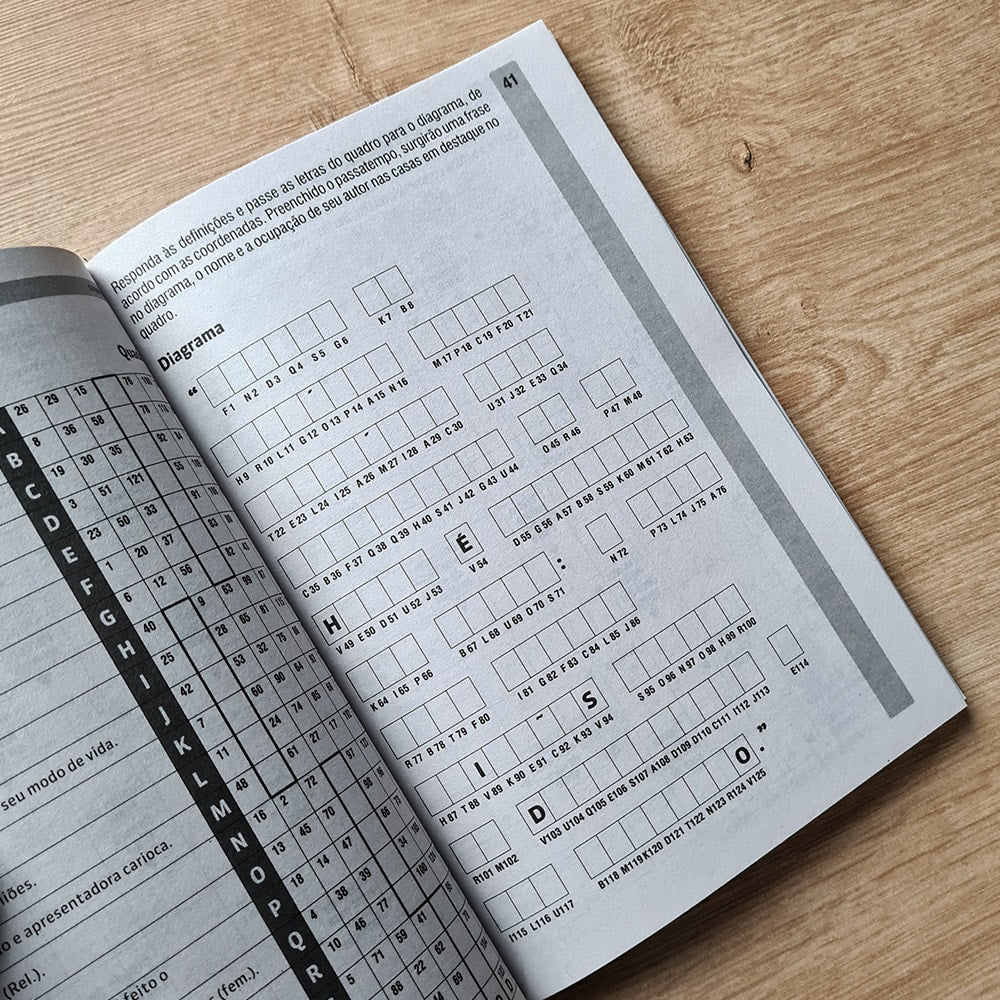 41
Responda às definições e passe as letras do quadro para o diagrama, de
acordo com as coordenadas. Preenchido o passatempo, surgirão uma frase
no diagrama, o nome e a ocupação de seu autor nas casas em destaque no
quadro.
Diagrama
“
F1 N2 D3 Q4 S5 G6 K7 B8
-
H9 R10 L11 G12 O13 P14 A15 N16 M17 P18 C19 F20 T21
-
T22 E23 L24 I25 A26 M27 I28 A29 C30 U31 J32 E33 Q34
C35 B36 F37 Q38 Q39 H40 S41 J42 G43 U44 O45 R46 P47 M48
H É
V49 E50 D51 U52 J53 V54 D55 G56 A57 B58 S59 K60 M61 T62 H63
:
K64 I65 P66 B67 L68 U69 O70 S71 N72 P73 L74 J75 A76
R77 B78 T79 F80 I81 G82 F83 C84 L85 J86
I - S
H87 T88 V89 K90 E91 C92 K93 V94 S95 O96 N97 O98 H99 R100
D
R101 M102 V103 U104 Q105 E106 S107 A108 D109 D110 C111 I112 J113 E114
O.”
I115 L116 U117 B118 M119 K120 D121 T122 N123 R124 V125
26 29 15 76
B 8 36 58 78
C 19 30 35 92
D 3 51 121 55
E 23 50 33 91
F 1 20 37 83
G 6 12 56 82
H 40 9 63 99
I 25 28 65 81
J 42 53 32 75
K 7 60 90 64
L 11 24 74 85
M 48 61 27 17
N 16 2 72 97
O 13 45 70
P 18 14 47
Q 4 38 39 34
R 10 46 77 100
5 71 59 41
88 22 62
seu modo de vida.
e apresentadora carioca.
(Rel.).
feito o
(fem.).